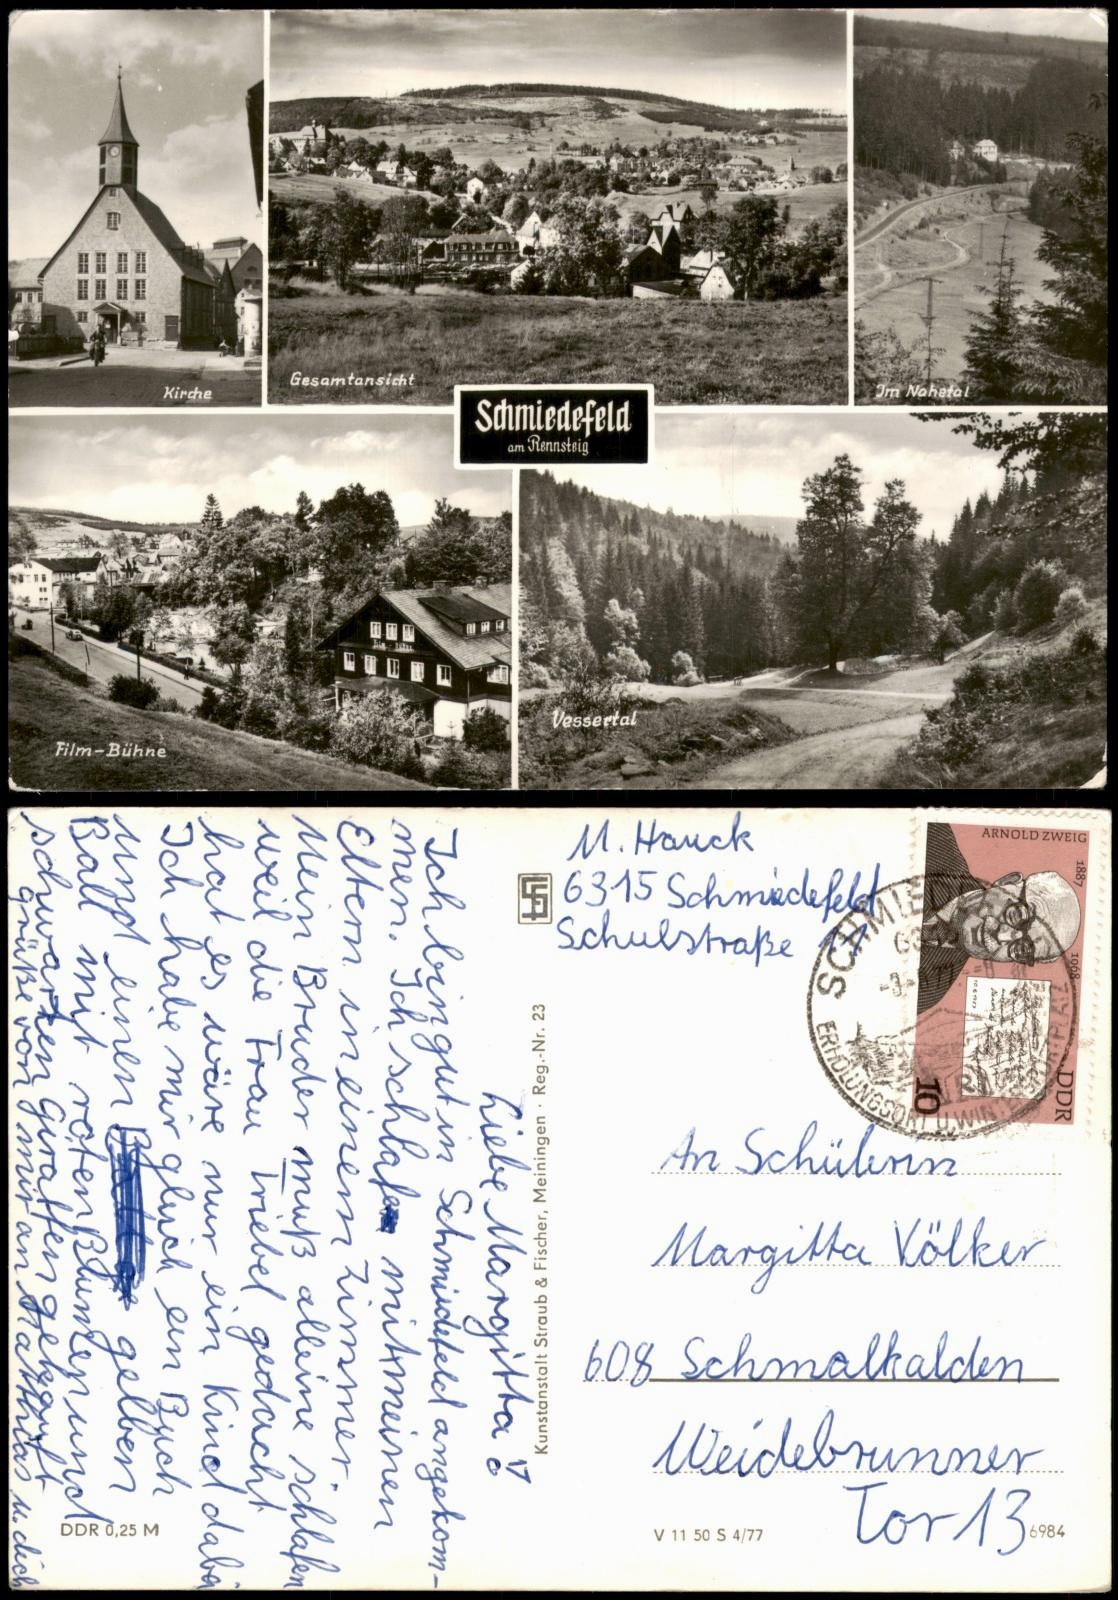 Kirche
Gesamtansicht
Im Nahetal
Schmiedefeld
am Rennsteig
Film-Bühne
Vessertal
Liebe Margitta!
Ich bin gut in Schmiedefeld angekom-
men. Ich schlafe mit meinen
Eltern in einem Zimmer.
Mein Bruder muß alleine schlafen
weil die Frau Triebel gedacht
hat es wäre nur ein Kind dabei
Ich habe mir gleich ein Buch
und einen gelben
Ball mit roten Blumen und
schwarzen Giraffen gekauft
grüße von mir an Matthias u. dich
DDR 0,25 M
Kunstanstalt Straub & Fischer, Meiningen · Reg.-Nr. 23
M. Hauck
6315 Schmiedefeld
Schulstraße 11
ARNOLD ZWEIG
1887
1968
DDR
10
SCHMIE
ERHOLUNGSORT U. WINTERSPORTPLATZ
An Schülerin
Margitta Völker
608 Schmalkalden
Weidebrunner
Tor 13
V 11 50 S 4/77
6984